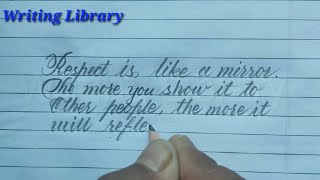 Writing Library
Respect is like a mirror.
The more you show it to
Other people, the more it
will refle